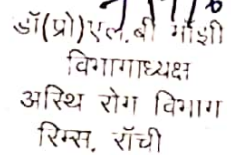 डॉ(प्रो)एल.बी माँझी
विभागाध्यक्ष
अस्थि रोग विभाग
रिम्स, राँची